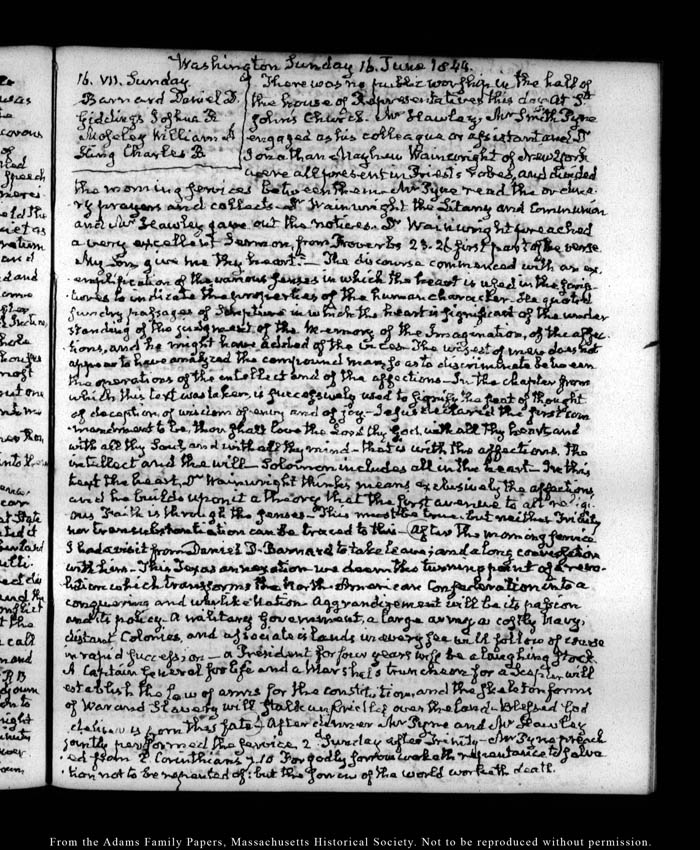 Washington Sunday 16. June 1844.
16. VII. Sunday
Barnard Daniel D.
Giddings Joshua R
Moseley William A
King Charles B.
There was no public worship in the hall of
the house of Representatives this day At St
John's Church. Mr Hawley, Mr Smith Pyne
engaged as his colleague or assistant and Dr
Jonathan Mayhew Wainwright of New York
were all present in Priest's robes, and divided
the morning services between them — Mr Pyne read the ordina-
ry prayers and collects — Dr Wainwright the Litany and Communion
and Mr Hawley gave out the notices. Dr Wainwright preached
a very excellent Sermon, from Proverbs 23. 26 first part of the verse.
My Son give me thy heart." — The discourse commenced with an ex-
emplification of the various senses in which the heart is used in the Scrip-
tures to indicate the properties of the human character. He quoted
sundry passages of Scripture in which the heart is significant of the under
standing of the judgment of the Memory of the Imagination, of the affec-
tions, and he might have added of the The wisest of men does not
appear to have analyzed the compound man, so as to discriminate between
the operations of the intellect and of the affections — In the chapter from
which this text was taken, is successively used to signify the seat of thought
of deception, of wisdom of envy and of joy — Jesus declared the first com
mandment to be, thou shalt love the Lord thy God, with all thy heart and
with all thy Soul, and with all thy mind — that is with the affections, the
intellect and the will — Solomon includes all in the heart — In this
text the heart, Dr Wainwright thinks means exclusively the affections,
and he builds upon it a theory that the first avenue to all religi-
ous Faith is through the senses. This must be true but neither Trinity
nor transubstantiation can be traced to this — after the morning service
I had a visit from Daniel D. Barnard to take leave; and a long conversation
with him — This Texas annexation we deem the turning point of a revo-
lution which transforms the North American Confederation into a
conquering and warlike Nation. Aggrandizement will be its passion
and its policy. A military Government, a large army, a costly Navy,
distant Colonies, and associate islands in every sea will follow of course
in rapid succession — a President for four years will be a laughing stock
A Captain General for life and a Marshal's truncheon for a Scepter will
establish the law of arms for the constitution, and the skeleton forms
of War and Slavery will stalk unbridled over the land — Blessed God
deliver us from this fate! After dinner Mr Pyne and Mr Hawley
jointly performed the service, 2d Sunday after Trinity — Mr Pyne preach
ed from 2 Corinthians 7. 10 For godly sorrow worketh repentance to salva
tion not to be repented of: but the sorrow of the world worketh death.
From the Adams Family Papers, Massachusetts Historical Society. Not to be reproduced without permission.